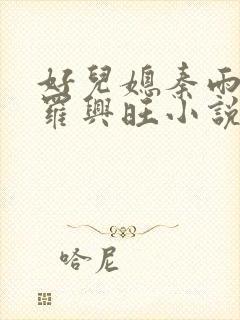 好兒媳秦雨
羅興旺小說
哈尼